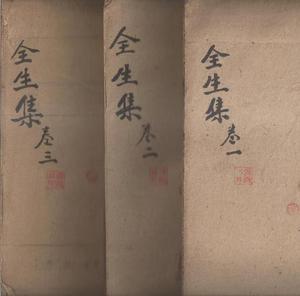 全生集
卷一
全生集
卷二
全生集
卷三